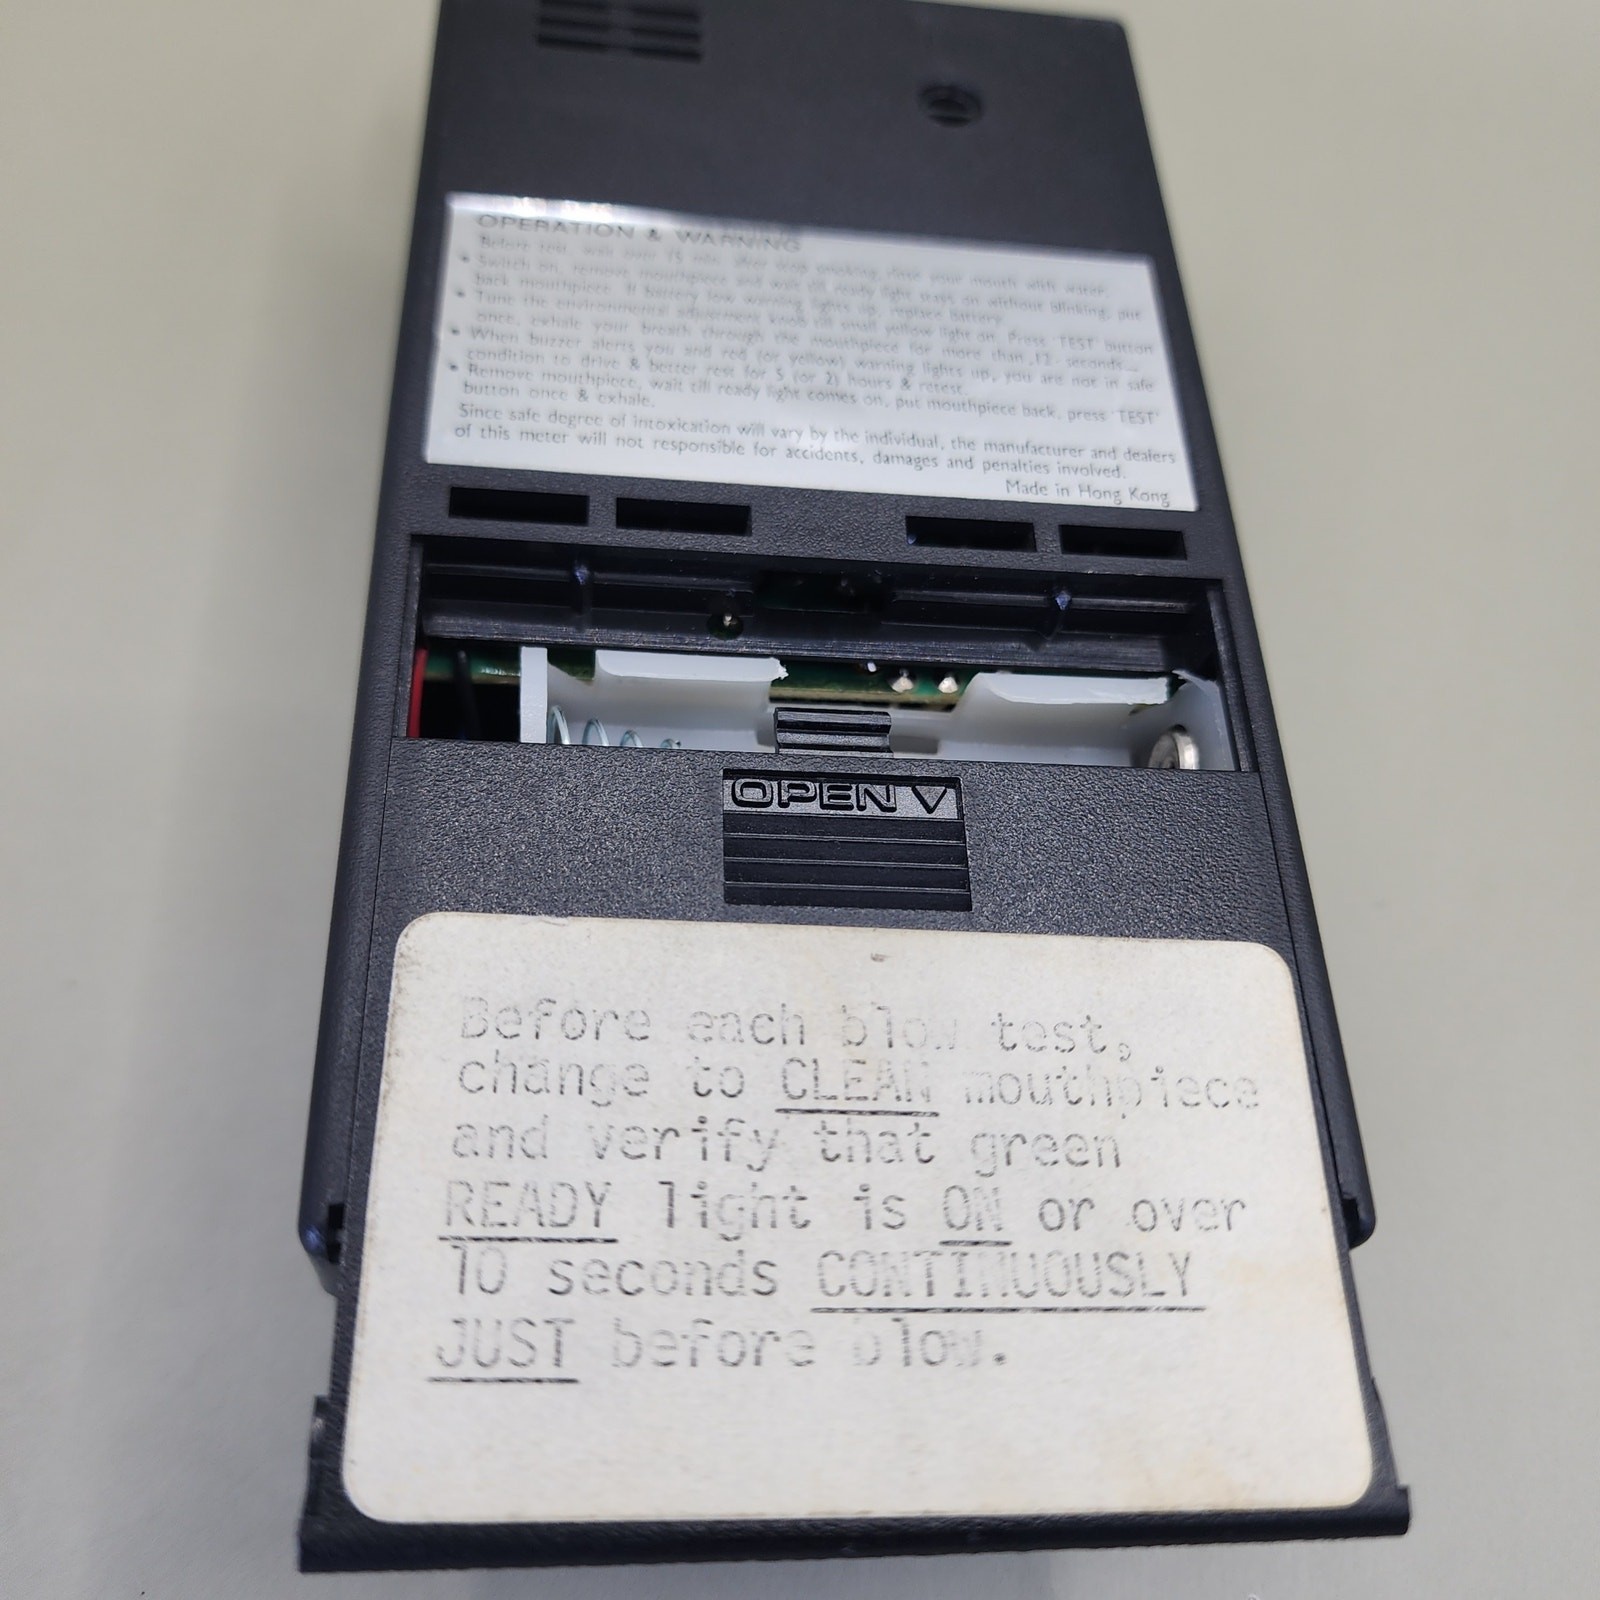 OPERATION & WARNING
Before test, wait over 15 min. after stop smoking, rinse your mouth with water.
• Switch on, remove mouthpiece and wait till ready light stays on without blinking, put
back mouthpiece. If battery low warning lights up, replace battery.
• Tune the environmental adjustment knob till small yellow light on. Press 'TEST' button
once, exhale your breath through the mouthpiece for more than 12 seconds
• When buzzer alerts you and red (or yellow) warning lights up, you are not in safe
condition to drive & better rest for 5 (or 2) hours & retest.
• Remove mouthpiece, wait till ready light comes on, put mouthpiece back, press 'TEST'
button once & exhale.
Since safe degree of intoxication will vary by the individual, the manufacturer and dealers
of this meter will not responsible for accidents, damages and penalties involved.
Made in Hong Kong
OPEN
Before each blow test,
change to CLEAN mouthpiece
and verify that green
READY light is ON or over
10 seconds CONTINUOUSLY
JUST before blow.